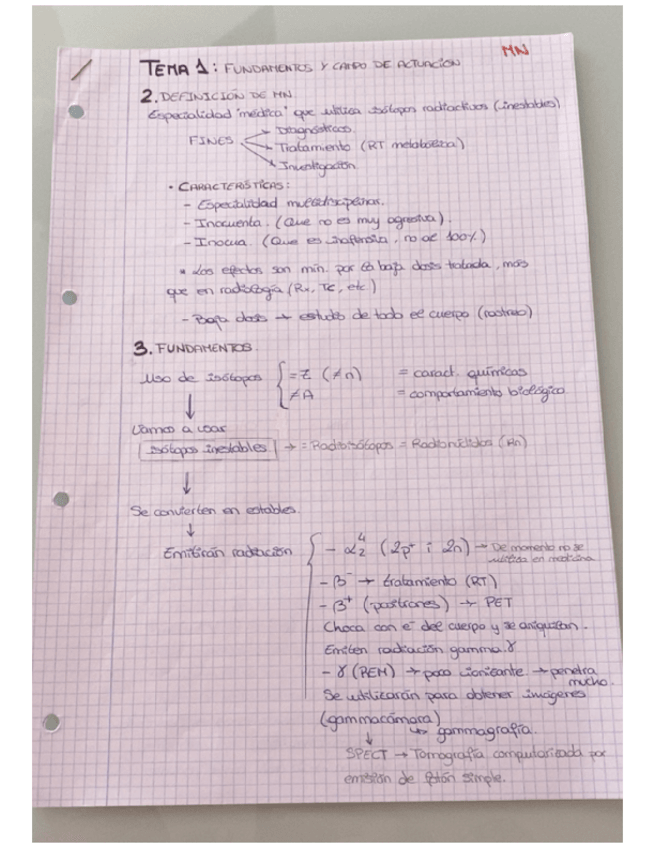 MN
TEMA 1: FUNDAMENTOS Y CAMPO DE ACTUACIÓN
2. DEFINICIÓN DE MN
Especialidad "médica" que utiliza isótopos radiactivos (inestables)
FINES → Diagnósticos.
→ Tratamiento (RT metabólica)
→ Investigación
• CARACTERÍSTICAS:
- Especialidad multidisciplinar.
- Inocuenta. (Que no es muy agresiva).
- Inocua. (Que es inofensiva, no al 100%)
* Los efectos son mín. por la baja dosis tratada, más
que en radiología (Rx, TC, etc.)
- Baja dosis → estudio de todo el cuerpo (rastreo)
3. FUNDAMENTOS.
Uso de isótopos { = Z (≠n) = caract. químicas
≠A = comportamiento biológico.
↓
Vamos a usar
isótopos inestables → = Radioisótopos = Radionúclidos (Rn)
↓
Se convierten en estables.
↓
Emitirán radiación { - α₂⁴ (2p⁺ i 2n) → De momento no se
utiliza en medicina
- β⁻ → tratamiento (RT)
- β⁺ (positrones) → PET
Choca con e⁻ del cuerpo y se aniquilan.
Emiten radiación gamma γ
- γ (REM) → poco ionizante → penetra
mucho.
Se utilizarán para obtener imágenes
(gammacámara)
↳ gammagrafía.
↓
SPECT → Tomografía computarizada por
emisión de fotón simple.